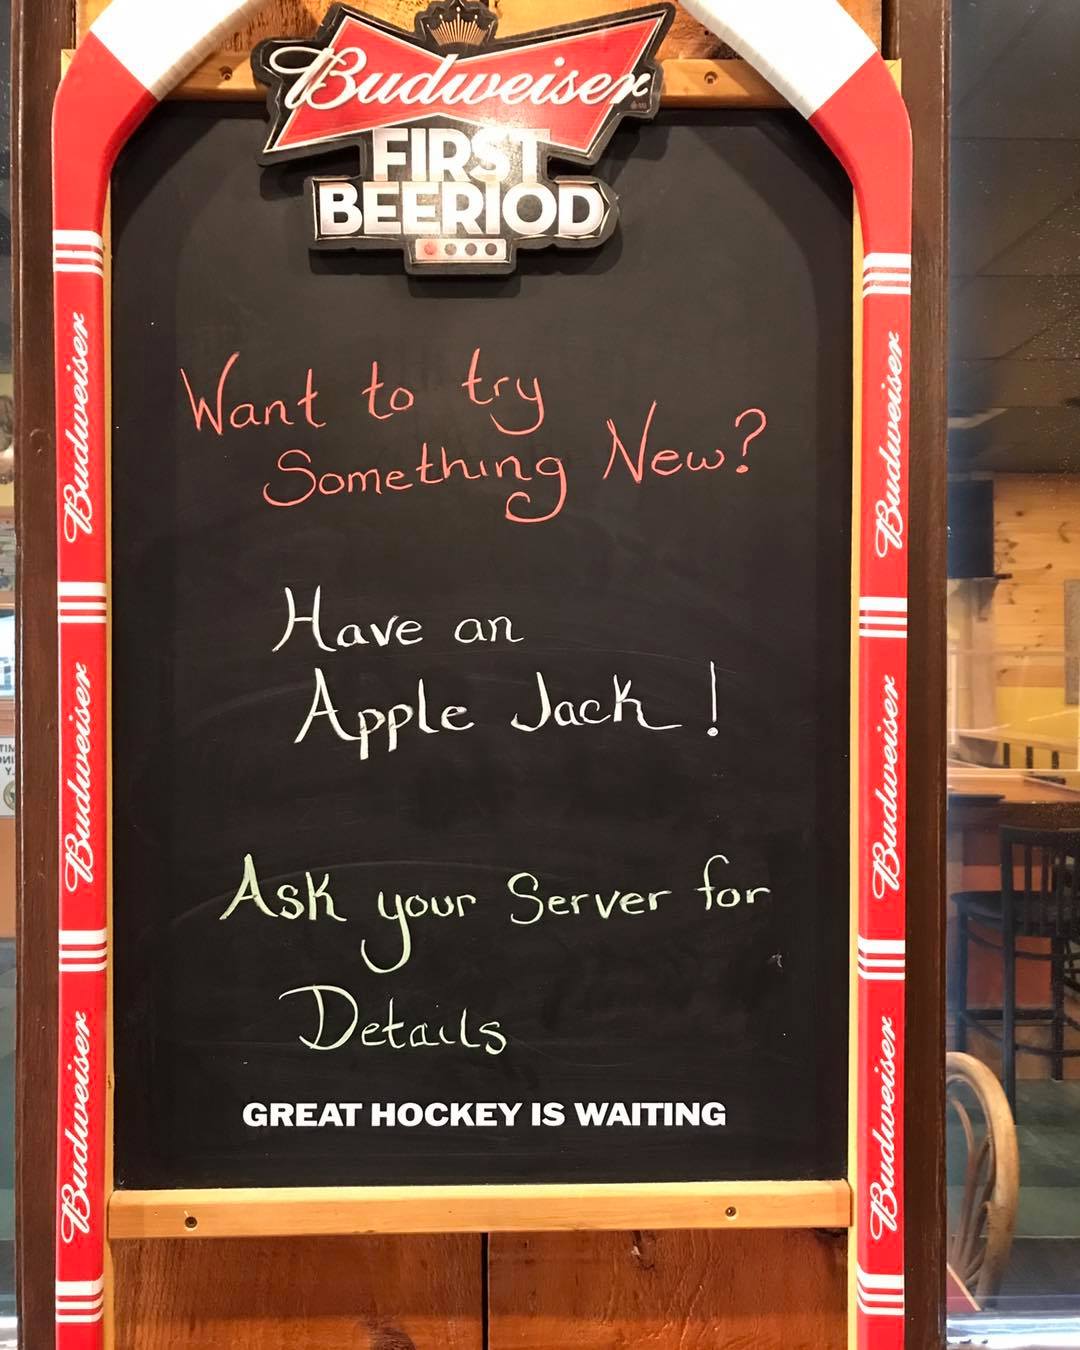 Budweiser
FIRST
BEERIOD
Want to try
Something New?
Have an
Apple Jack!
Ask your Server for
Details
GREAT HOCKEY IS WAITING
Budweiser
Budweiser
Budweiser
Budweiser
Budweiser
Budweiser